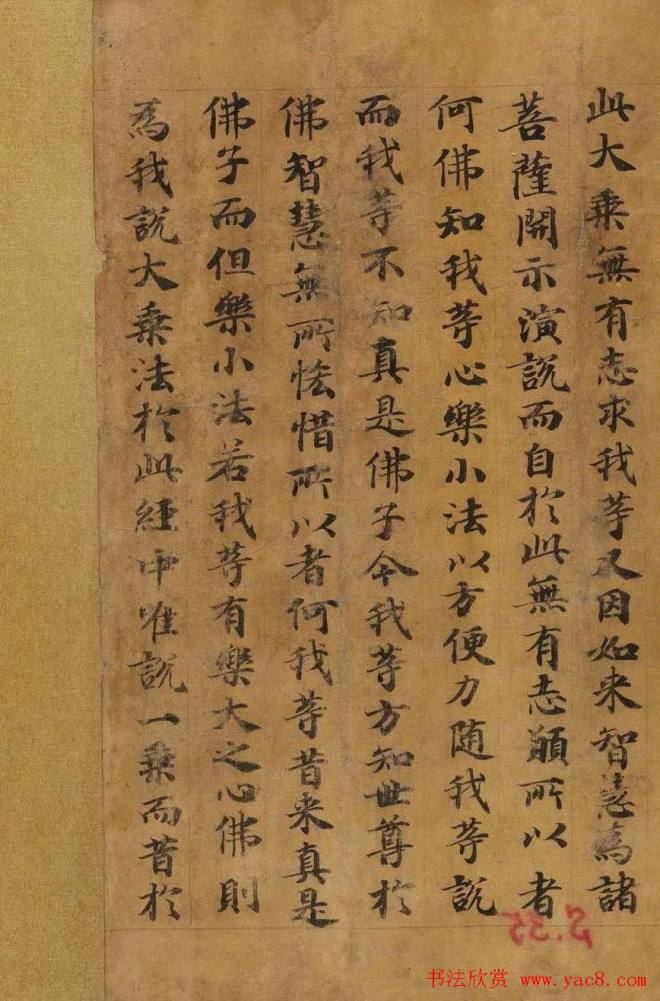 此大乘無有志求我等又因如来智慧為諸
菩薩開示演說而自於此無有志願所以者
何佛知我等心樂小法以方便力随我等說
而我等不知真是佛子今我等方知世尊於
佛智慧無所悋惜所以者何我等昔来真是
佛子而但樂小法若我等有樂大之心佛則
為我說大乘法於此經中唯說一乘而昔於
书法欣赏 www.yac8.com